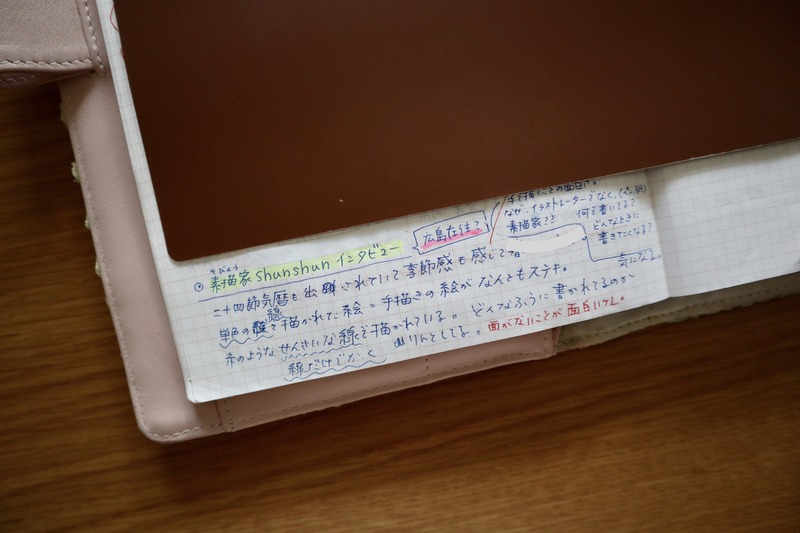 手で描くことの面白さ。
なぜ、イラストレーターでなく、
素描家??
何で書いてる?
どんなときに
書きたくなる?
気になる。
広島在住?
そびょう
素描家 shunshun インタビュー
二十四節気暦も出版されていて季節感も感じて
単色の線で描かれた絵=手描きの絵がなんともステキ。
糸のようなせんさいな線で描かれている。どんなふうに書かれてるのか
線だけでなく りんとしてる。面がないことが面白いナと。